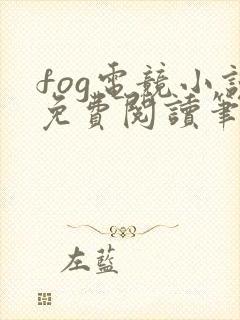 fog電競小説
免費閱讀筆
左藍